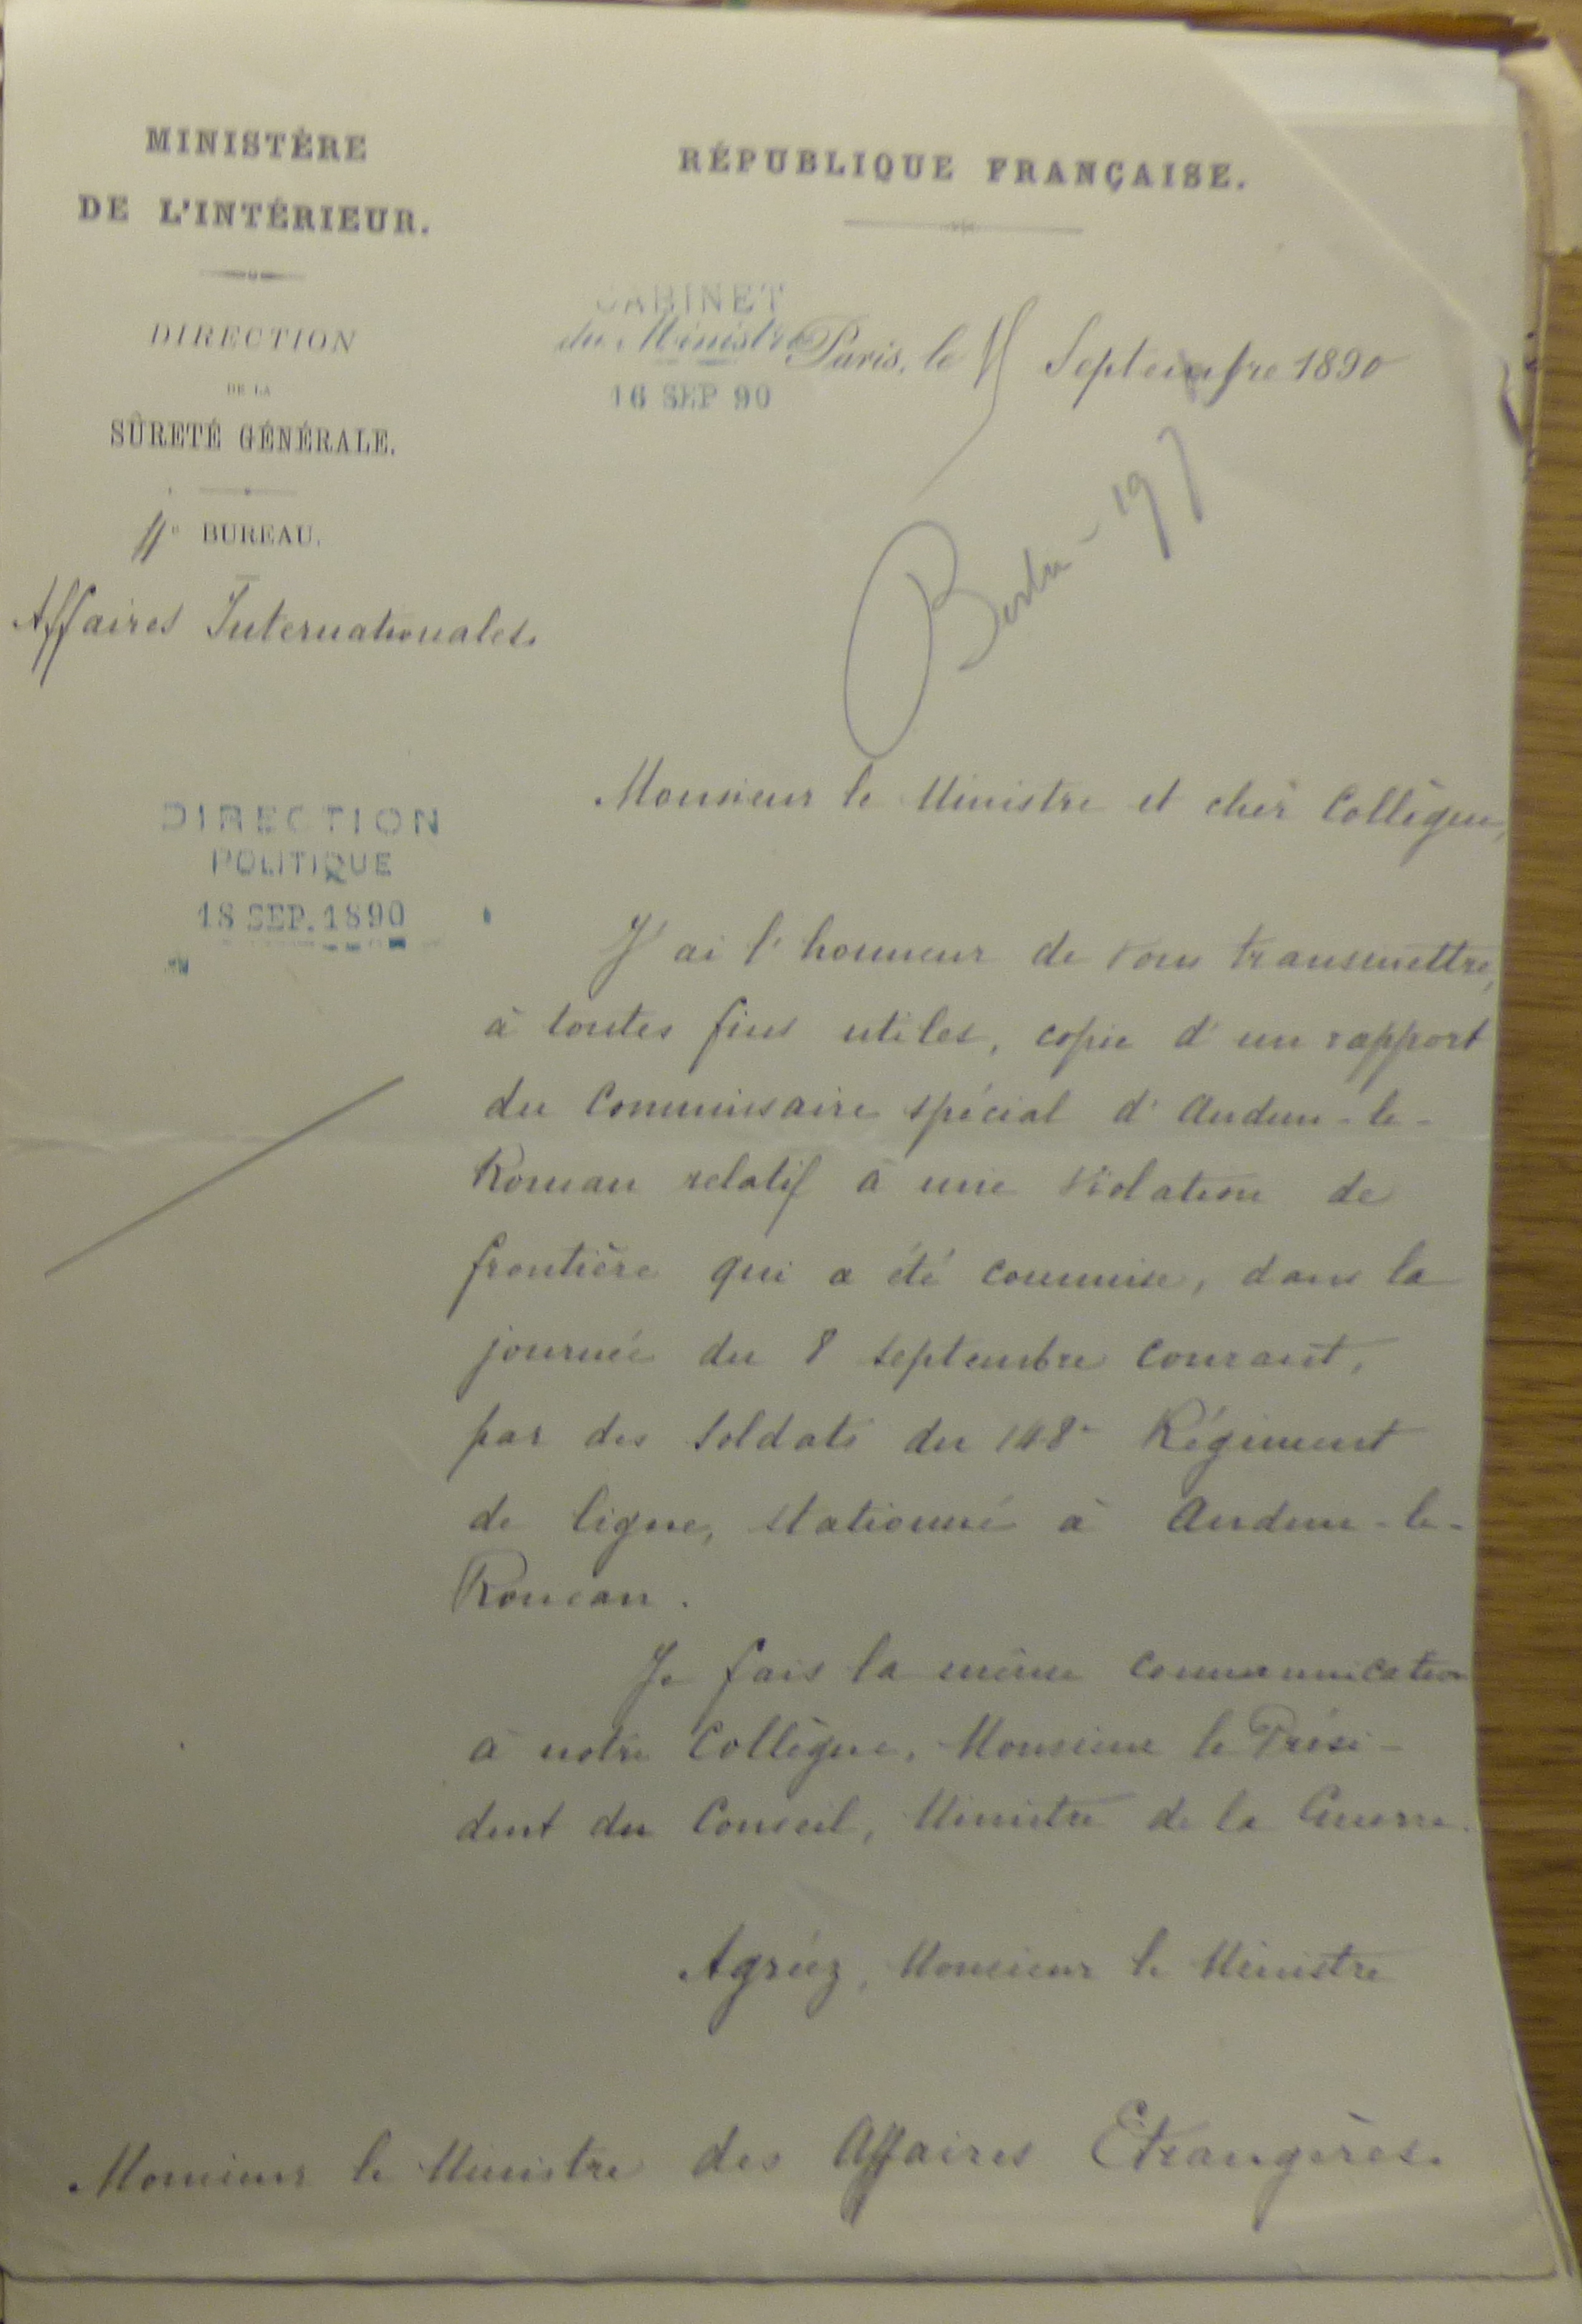 MINISTÈRE
DE L'INTÉRIEUR.
DIRECTION
DE LA
SÛRETÉ GÉNÉRALE.
BUREAU.
Affaires Internationales.
RÉPUBLIQUE FRANÇAISE.
CABINET
du Ministre
16 SEP 90
Paris, le Septembre 1890
DIRECTION
POLITIQUE
18 SEP. 1890
Monsieur le Ministre et cher Collègue,
J'ai l'honneur de vous transmettre,
à toutes fins utiles, copie d'un rapport
du Commissaire spécial d'Audun-le-
Roman relatif à une violation de
frontière qui a été commise, dans la
journée du 8 septembre courant,
par des soldats du 148e Régiment
de ligne, stationné à Audun-le-
Roman.
Je fais la même communication
à notre Collègue, Monsieur le Prési-
dent du Conseil, Ministre de la Guerre.
Agréez, Monsieur le Ministre
Monsieur le Ministre des Affaires Etrangères.